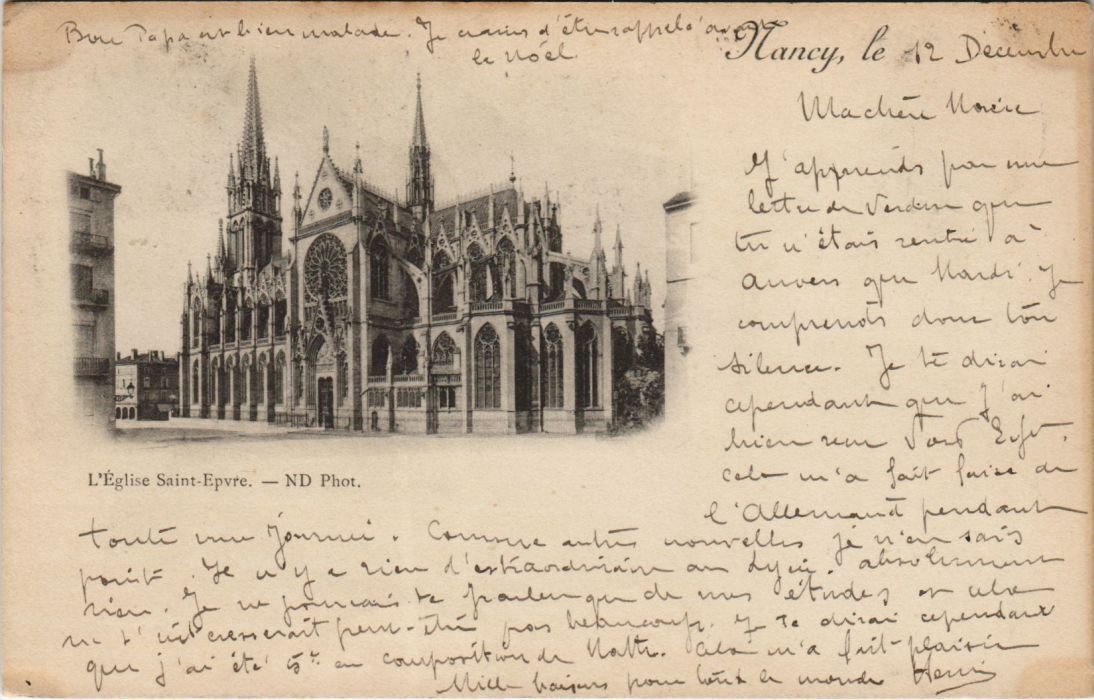 Bon Papa est bien malade. Je crains d'être rappelé avant
le Noël
Nancy, le 12 Décembre
Ma chère
J'apprends par une
lettre de Verdun que
tu n'étais rentré à
Anvers que Mardi. Je
comprends donc ton
silence. Je te dirai
cependant que j'ai
bien reçu
cela m'a fait faire de
l'Allemand pendant
L'Église Saint-Epvre. — ND Phot.
toute une journée. Comme autres nouvelles je n'en sais
point. Il n'y a rien d'extraordinaire au Lycée. absolument
rien. Je ne pourrais te parler que de mes études et cela
ne t'intéresserait peut-être pas beaucoup. Je te dirai cependant
que j'ai été 5e en composition de Math. Cela m'a fait plaisir
Mille baisers pour tout le monde Henri